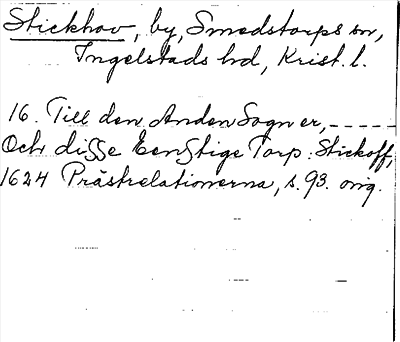 Stickhov, by, Smedstorps sn,
Ingelstads hd, Krist. l.
16. Till den Anden Sogn er, -----
Och disse Eenstige Torp: Stickoff,
1624 Prästrelationerna, s. 93. orig.